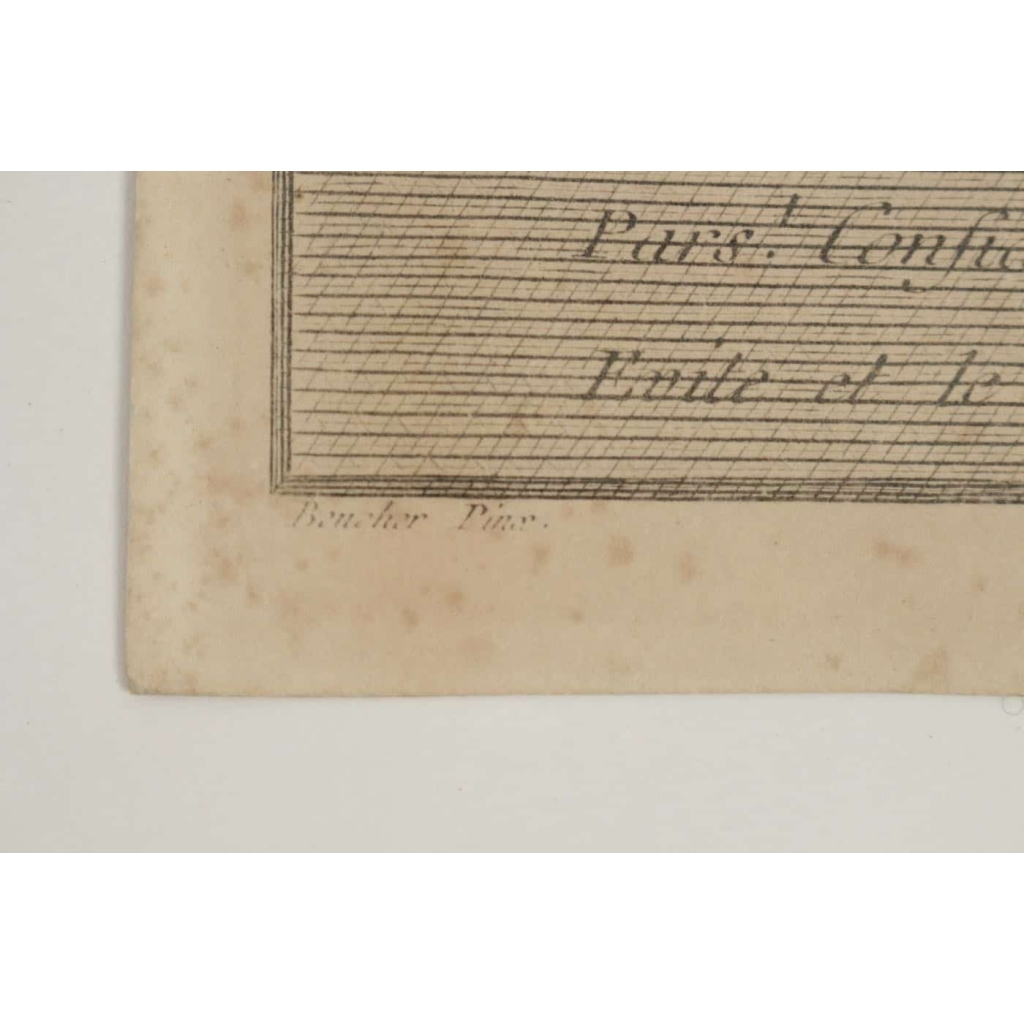 Pars.! Confu
Evite et le
Boucher Pinx.